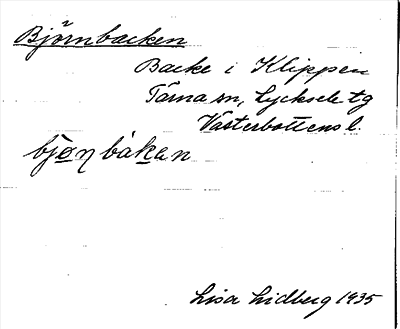 Björnbacken
Backe i Klippen
Tärna sn, Lycksele tg
Västerbottens l.
bjøn båkan
Lisa Lidberg 1935